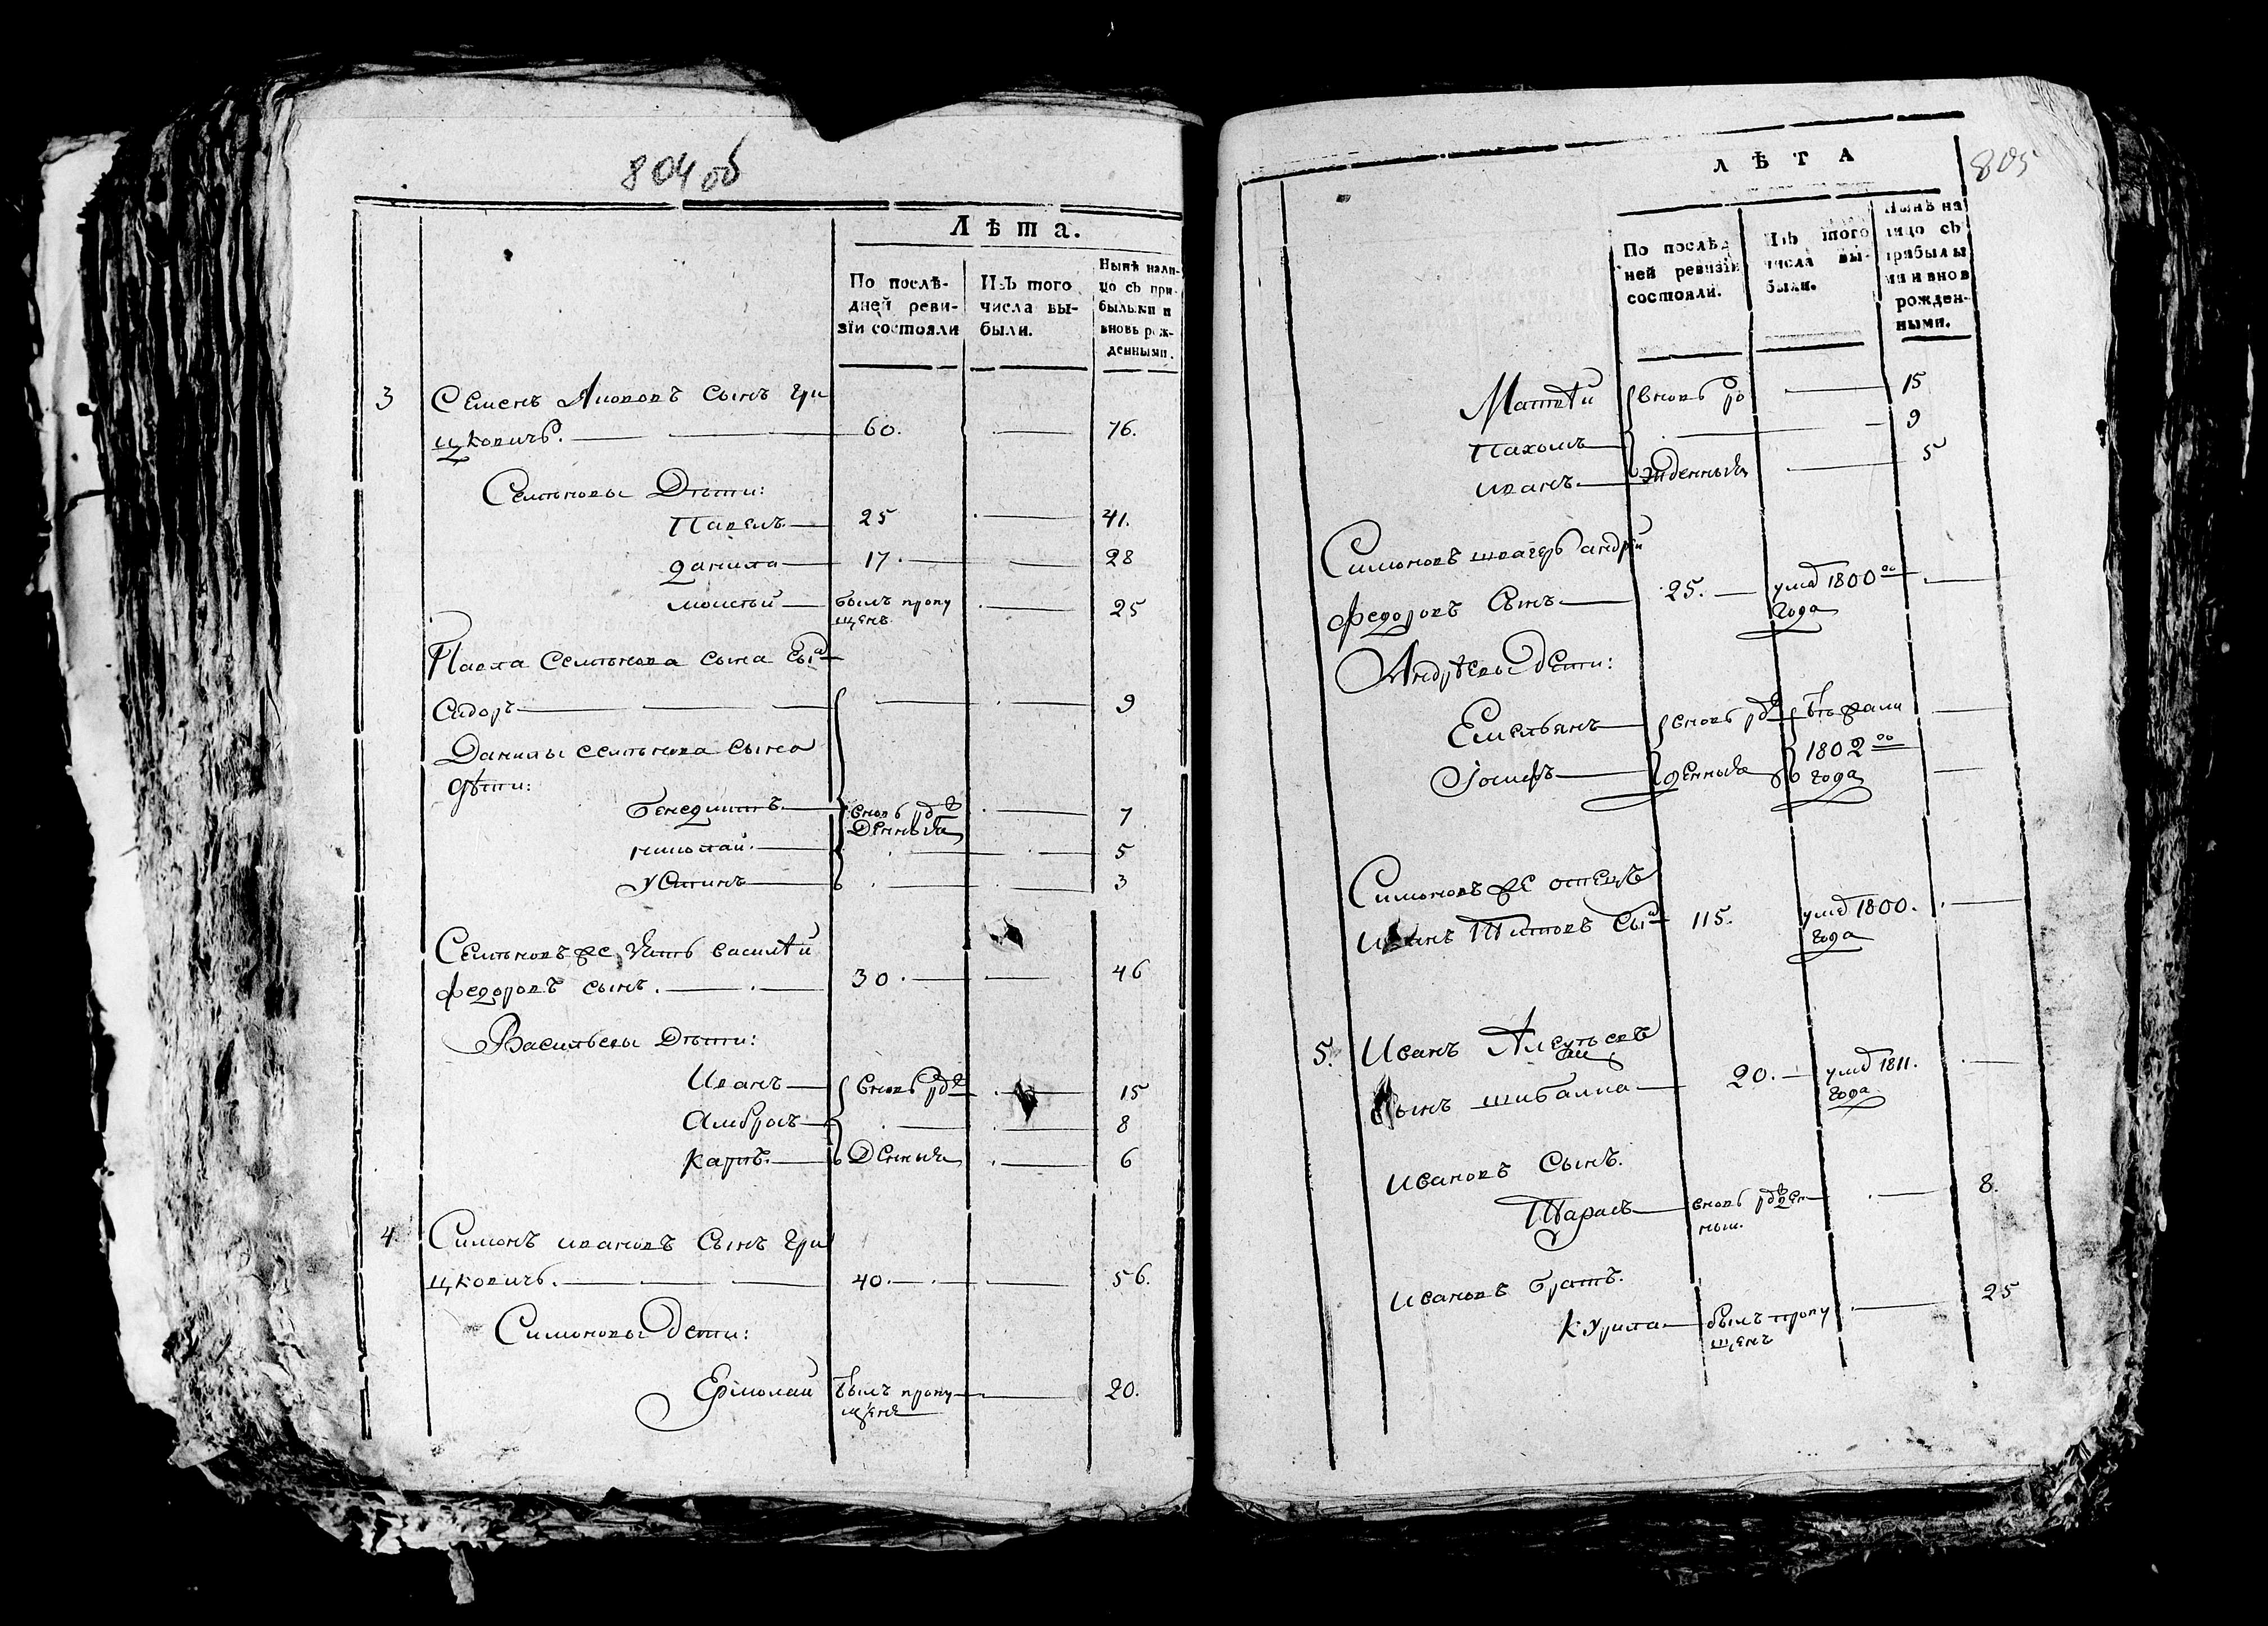 804 об
Лѣта.
По послѣ-
дней реви-
зїи состояли
Изъ того
числа вы-
были.
Нынѣ нали-
цо съ при-
былыми и
вновь рож-
денными.
3 Семенъ Якововъ сынъ Гри
цковичъ. 60. 76.
Семѣновы Дѣти:
Павелъ 25 41.
Данила 17. 28
Моисѣй былъ пропу 25
щенъ
Павла Семѣнова сына сынъ
Сидоръ 9
Данилы Семѣнова сына
дѣти:
Бенедиктъ вновь рож 7
денныя
Николай. 5
Устинъ 3
Семѣновъ же зять Василѣй
Федоровъ сынъ. 30. 46
Васильевы Дѣти:
Иванъ вновь рож 15
Амбросъ 8
Карпъ. Денныя 6
4 Симонъ Ивановъ Сынъ Гри
цковичъ. 40. 56.
Симоновы Дети:
Ермолай былъ пропу 20.
щенъ
805
ЛѢТА
По послѣд
ней ревизїи
состояли.
Изъ того
числа вы-
были.
Нынѣ на
лицо съ
прибылы
ми и внов
рожден-
ными.
Матвѣй вновь ро 15
Пахомъ 9
Иванъ жденныя 5
Симоновъ швагеръ Андрѣй
Федоровъ Сынъ 25. умеръ 1800го
года
Андрѣевы дети:
Емельянъ вновь рож бѣжали
Іосифъ денныя 1802го
года
Симоновъ же отецъ
Иванъ Титовъ Сынъ 115. умеръ 1800.
года
5. Иванъ Алеѵсѣевъ
Сынъ Шибалка 20. умеръ 1811.
года
Ивановъ Сынъ.
Тарасъ вновь рожден 8.
ныи.
Ивановъ братъ.
Курила былъ пропу 25
щенъ